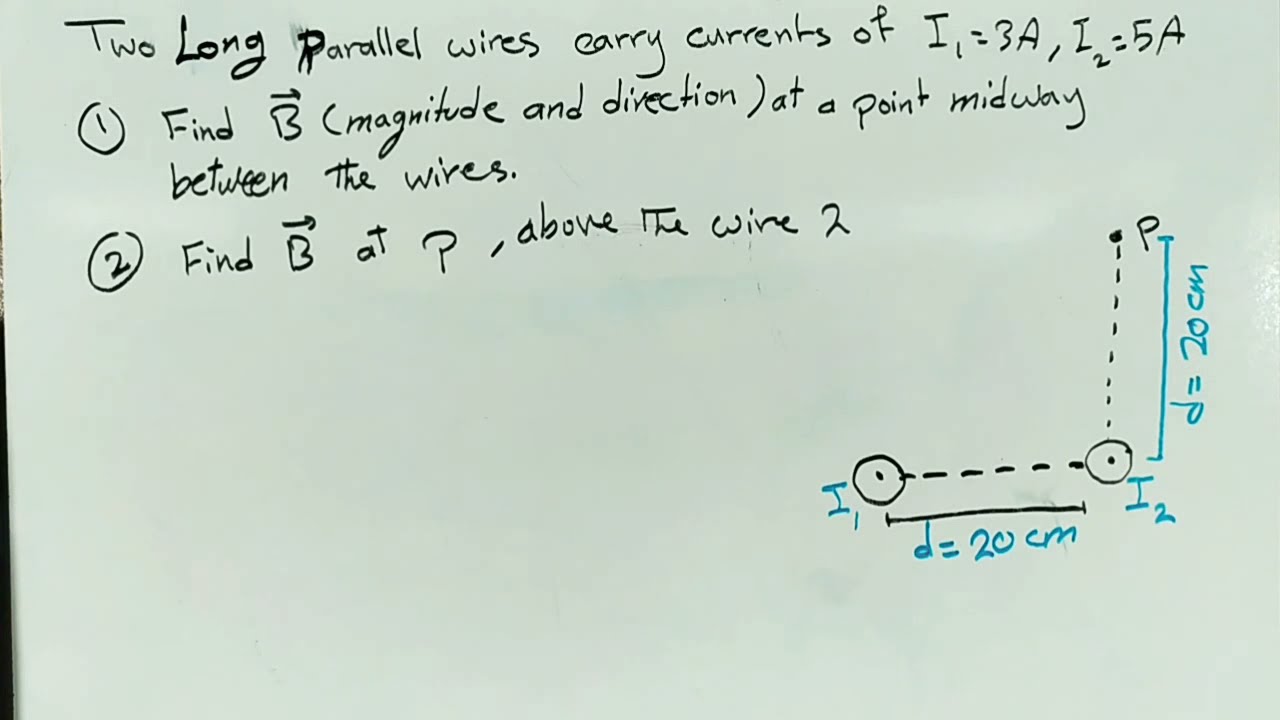 Two Long Parallel wires carry currents of I₁=3A, I₂=5A
① Find B⃗ (magnitude and direction) at a point midway
between the wires.
② Find B⃗ at P, above the wire 2
P
d=20cm
I₁
I₂
d=20cm